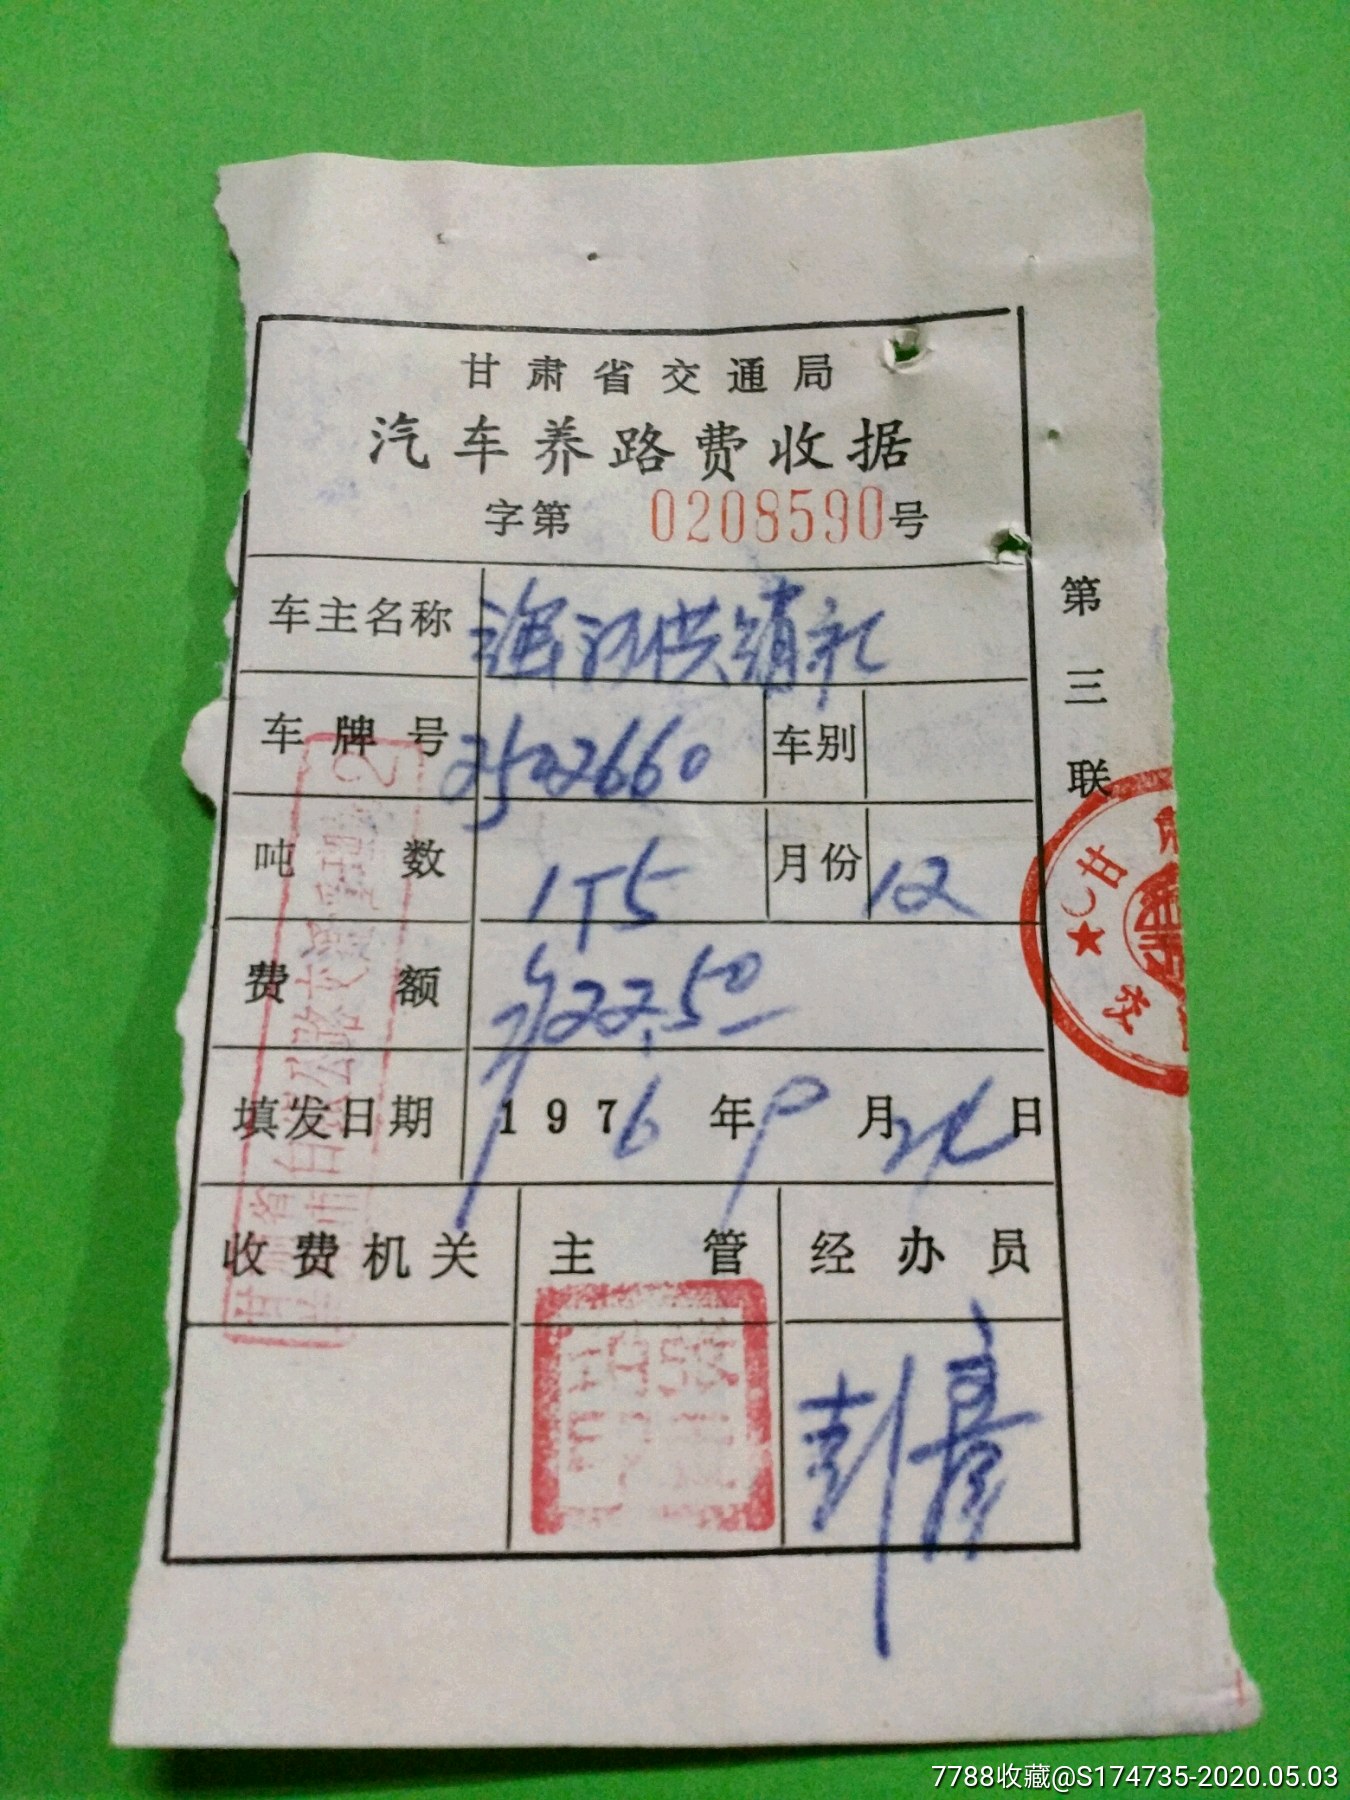 甘肃省交通局
汽车养路费收据
字第 0208590号
第三联
车主名称
车牌号 2502660 车别
吨数 1T5 月份 12
费额 ¥22.50
填发日期 1976年9月24日
收费机关 主管 经办员
彭彦
7788收藏@S174735-2020.05.03